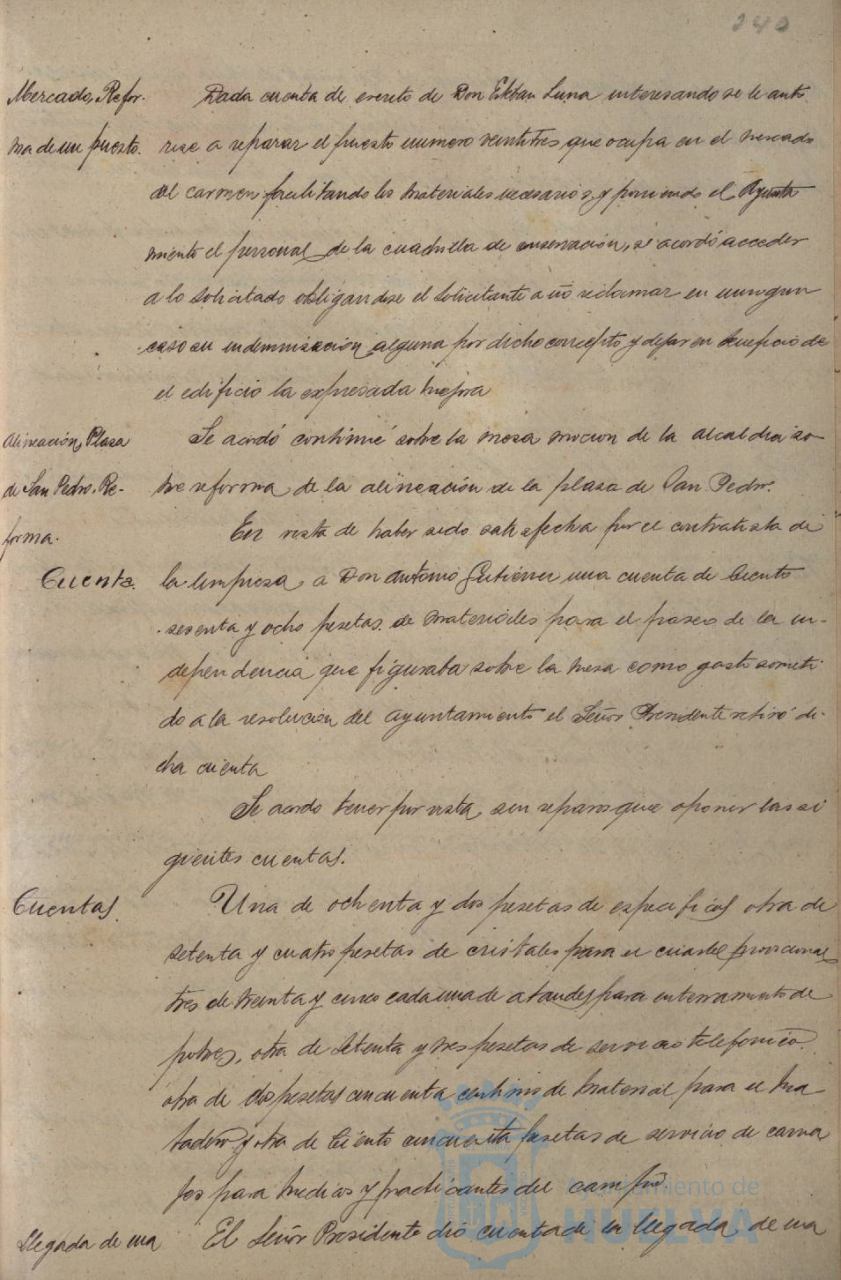 240
Mercado, Refor-
ma de un puesto.
Dada cuenta de escrito de Don Estéban Luna interesando se le auto
rise a reparar el puesto numero veintitres que ocupa en el mercado
del carmen facilitando los materiales necesarios, y poniendo el Ayunta
miento el personal de la cuadrilla de conservación, se acordó acceder
a lo solicitado obligandose el solicitante a no reclamar en ningun
caso indemnización alguna por dicho concepto y dejar en beneficio de
el edificio la expresada mejora
Alineación, Plasa
de San Pedro. Re-
forma.
Se acordó continué sobre la mesa mocion de la alcaldia so-
bre reforma de la alineación de la plasa de San Pedro.
En vista de haber sido satisfecha por el contratista de
Cuenta.
la limpiesa a Don Antonio Gutiérrez una cuenta de ciento
sesenta y ocho pesetas de materiales para el paseo de la in-
dependencia que figuraba sobre la mesa como gasto someti
do a la resolución del ayuntamiento el Señor Presidente retiró di-
cha cuenta
Se acordo tener por vista sin reparos que oponer las si
guientes cuentas.
Cuentas.
Una de ochenta y dos pesetas de especificos otra de
setenta y cuatro pesetas de cristales para el cuartel provicional
tres de treinta y cinco cada una de ataudes para enterramiento de
pobres, otra de setenta y tres pesetas de servicio telefonico
otra de dos pesetas cincuenta centimos de material para el ma
tadero y otra de ciento cincuenta pesetas de servicio de carrua
jes para medicos y practicantes del campo
Llegada de una
El Señor Presidente dió cuenta de la llegada de una
Ayuntamiento de
HUELVA